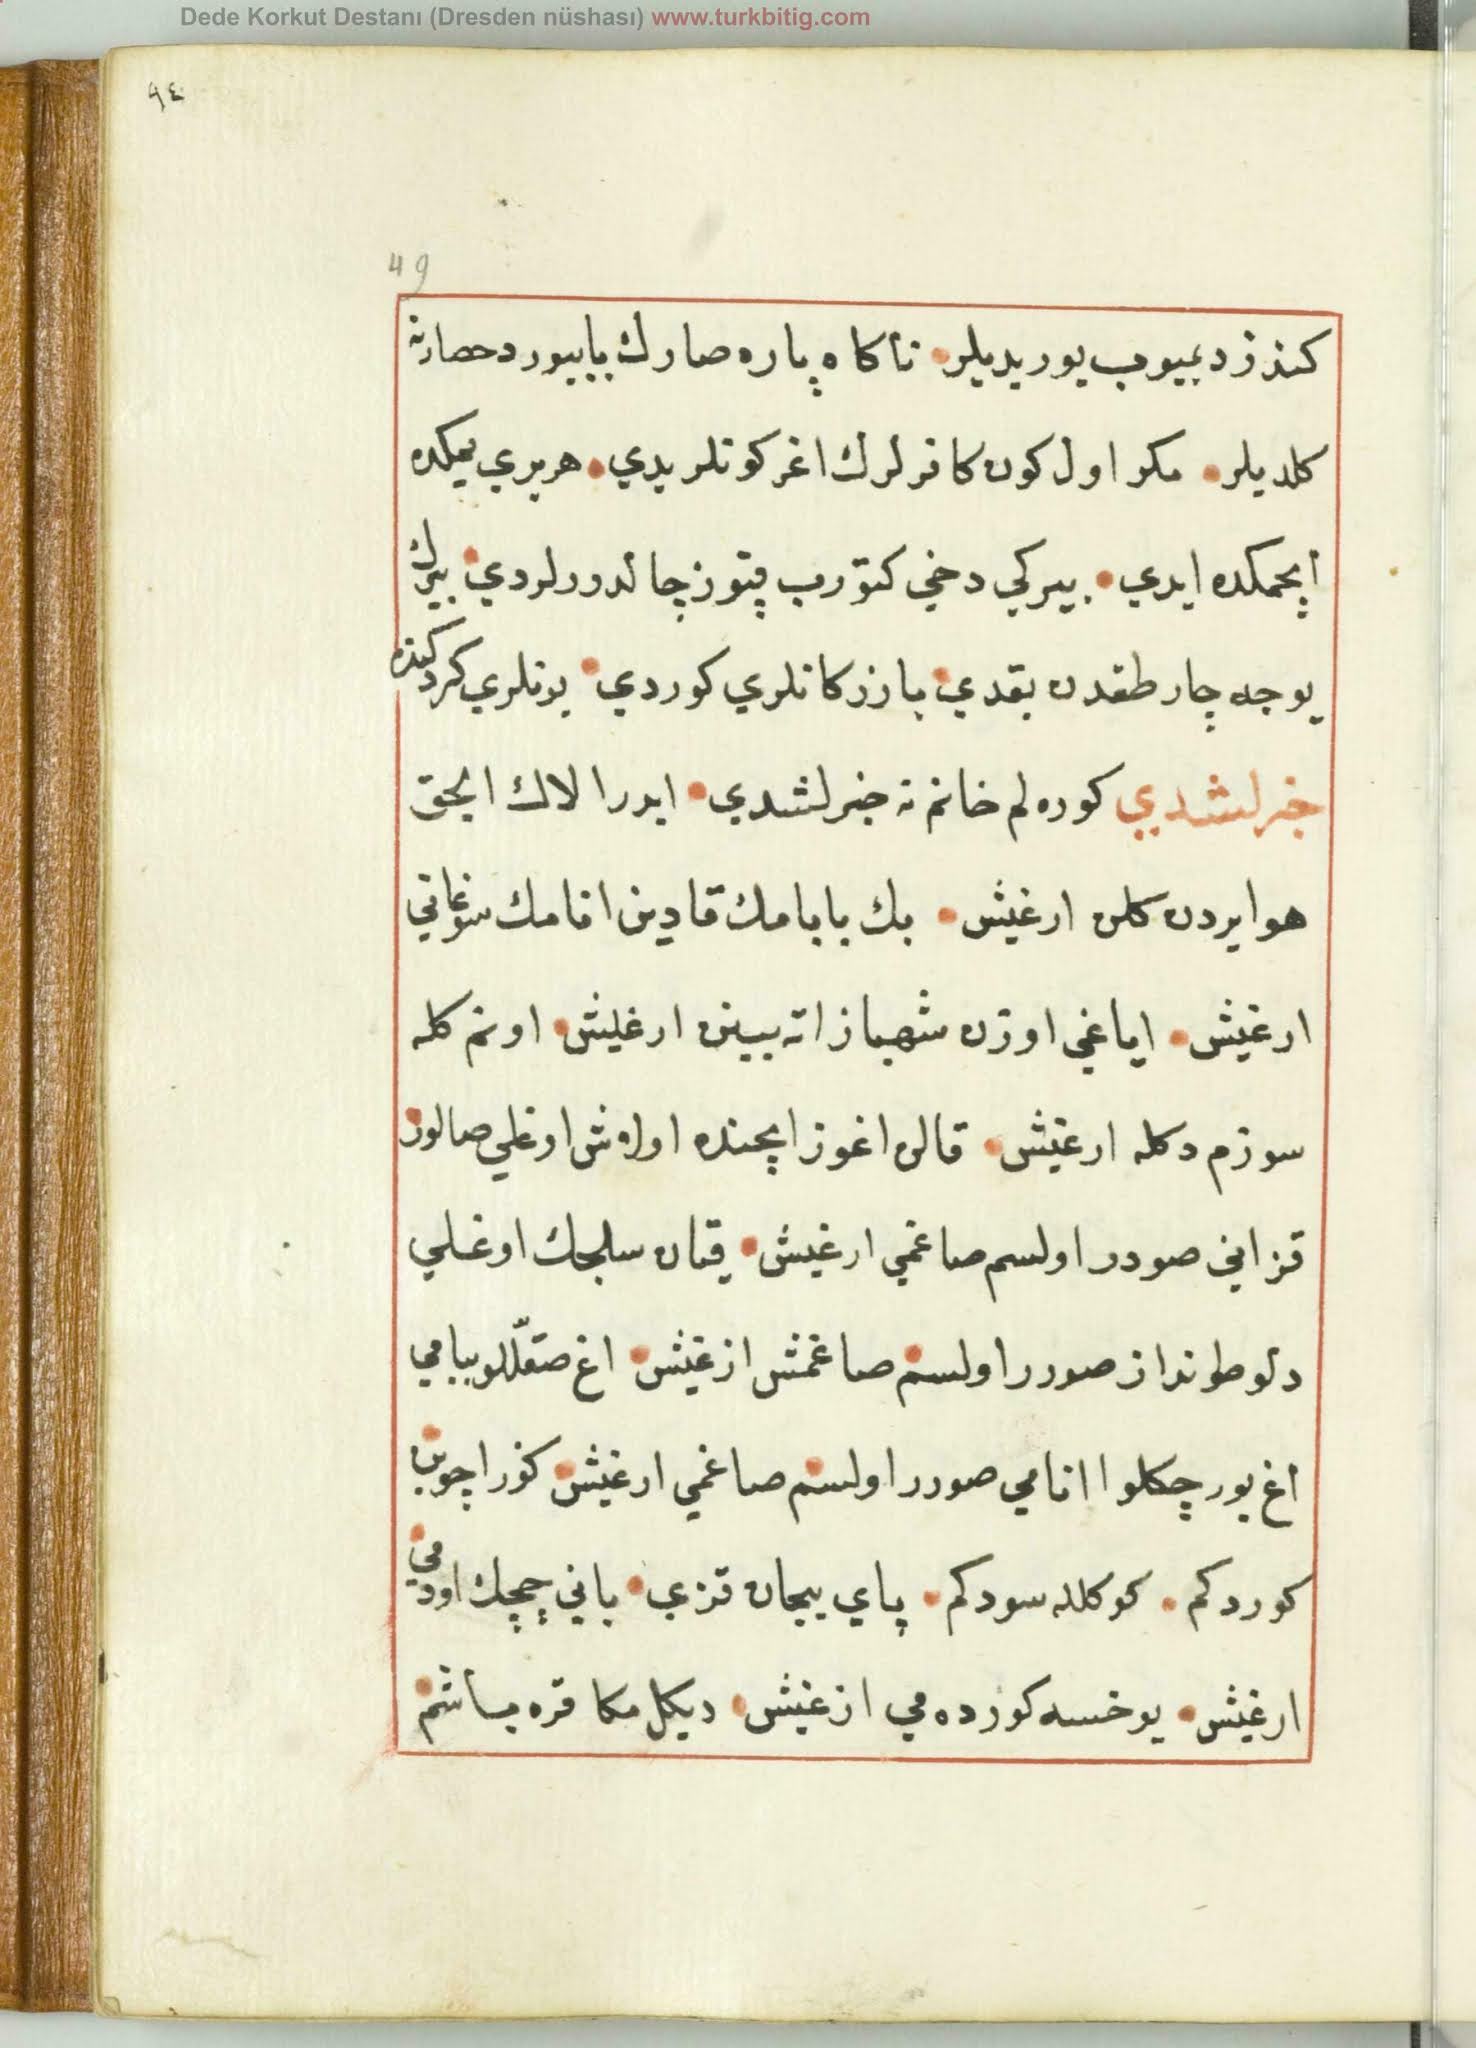 Dede Korkut Destanı (Dresden nüshası) www.turkbitig.com
٩٤
49
كندز ديميوب يوريديلر ناكاه پاره صارك بايبورد حصارنه
كلديلر مكر اول كون كافرلرك اغر كونلريدي هر بري يمكده
ايچمكده ايدي بيركي دخي كتورب قپوز چالدورلردي بيرك
يوجه چارطقدن بقدي بازركانلري كوردي بونلري كردكنده
خبرلشدي كوره لم خانم نه خبرلشدي ايدر الاك الچق
هوا يردن كلن ارغيش بك بابامك قادين انامك سوغاتي
ارغيش اياغي اوزن شهباز اته بينن ارغيش اونم كله
سوزم دكله ارغيش قالن اغوز ايچنده اولاش اوغلي صالور
قزاني صودر اولسم صاغمي ارغيش قيان سلجك اوغلي
دلو طونداز صورر اولسم صاغمش ارغيش اغ صقللو ببامي
اغ بورچكلو انامي صورر اولسم صاغمي ارغيش كوز اچوبن
كوردكم كوكلله سودكم پاي بيجان قزي باني چيچك اودمي
ارغيش يوخسه كورده مي ارغيش ديكل مكا قره باشم